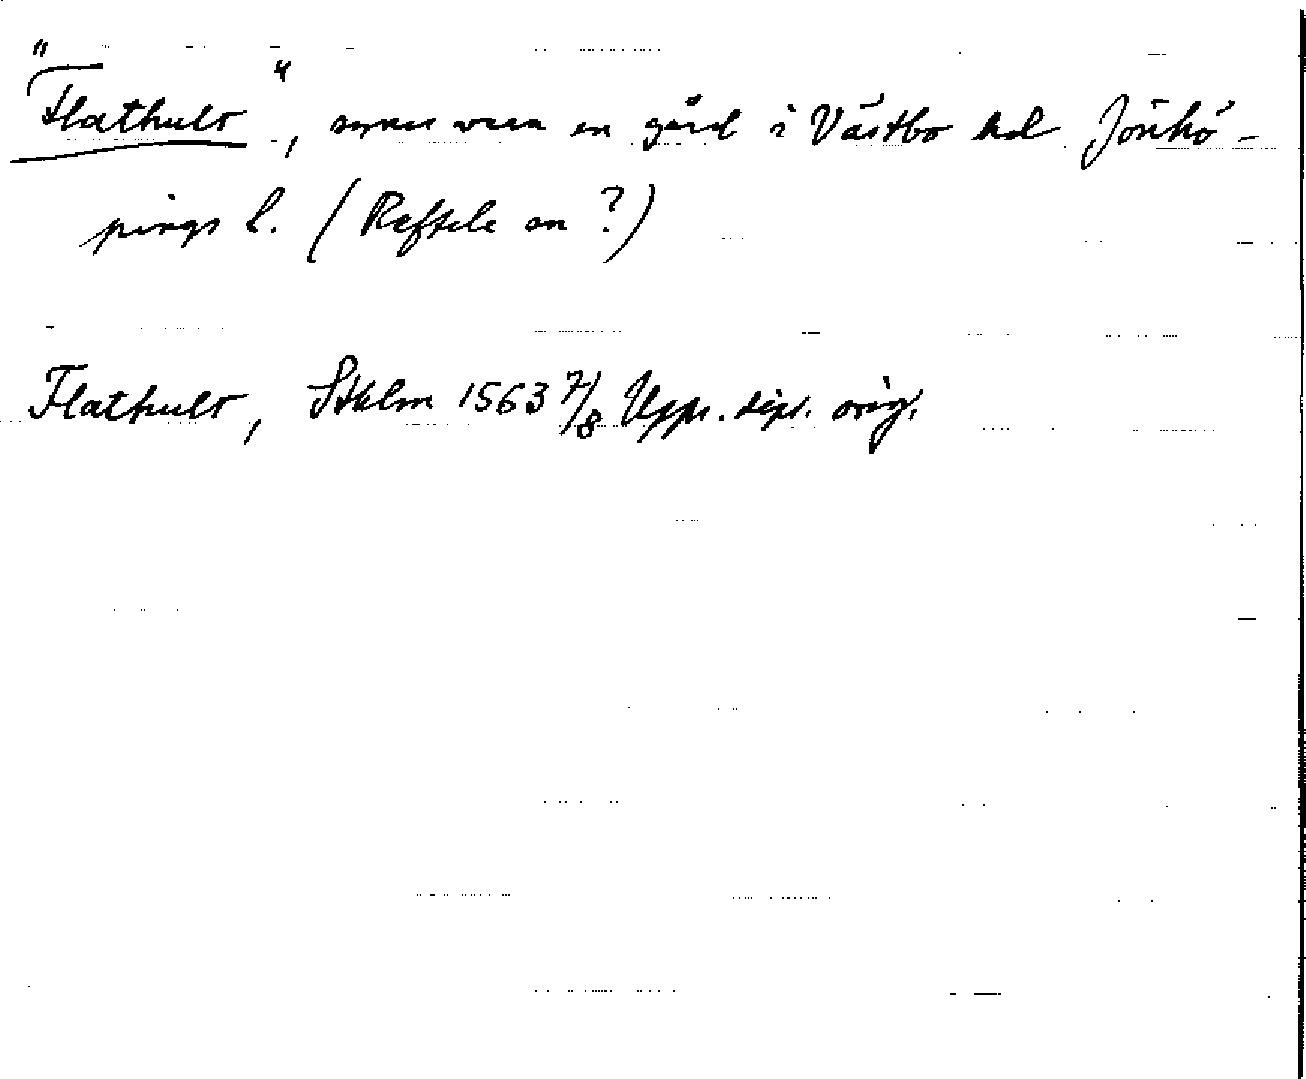 "Flathult", synes vara en gård i Västbo hd Jönkö-
pings l. (Reftele sn?)
Flathult, Sthlm 1563 7/8 Upps. dipl. orig.